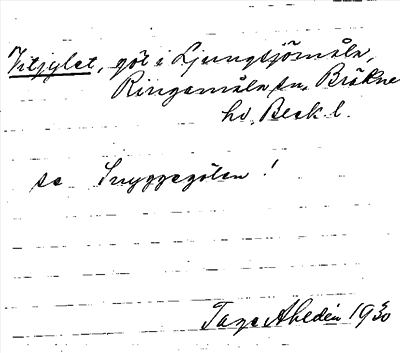 Vitjylet, göl i Ljungsjömåla,
Ringamåla sn, Bräkne
hd, Blek l.
se Snyggegölen!
Tage Ahedin 1930